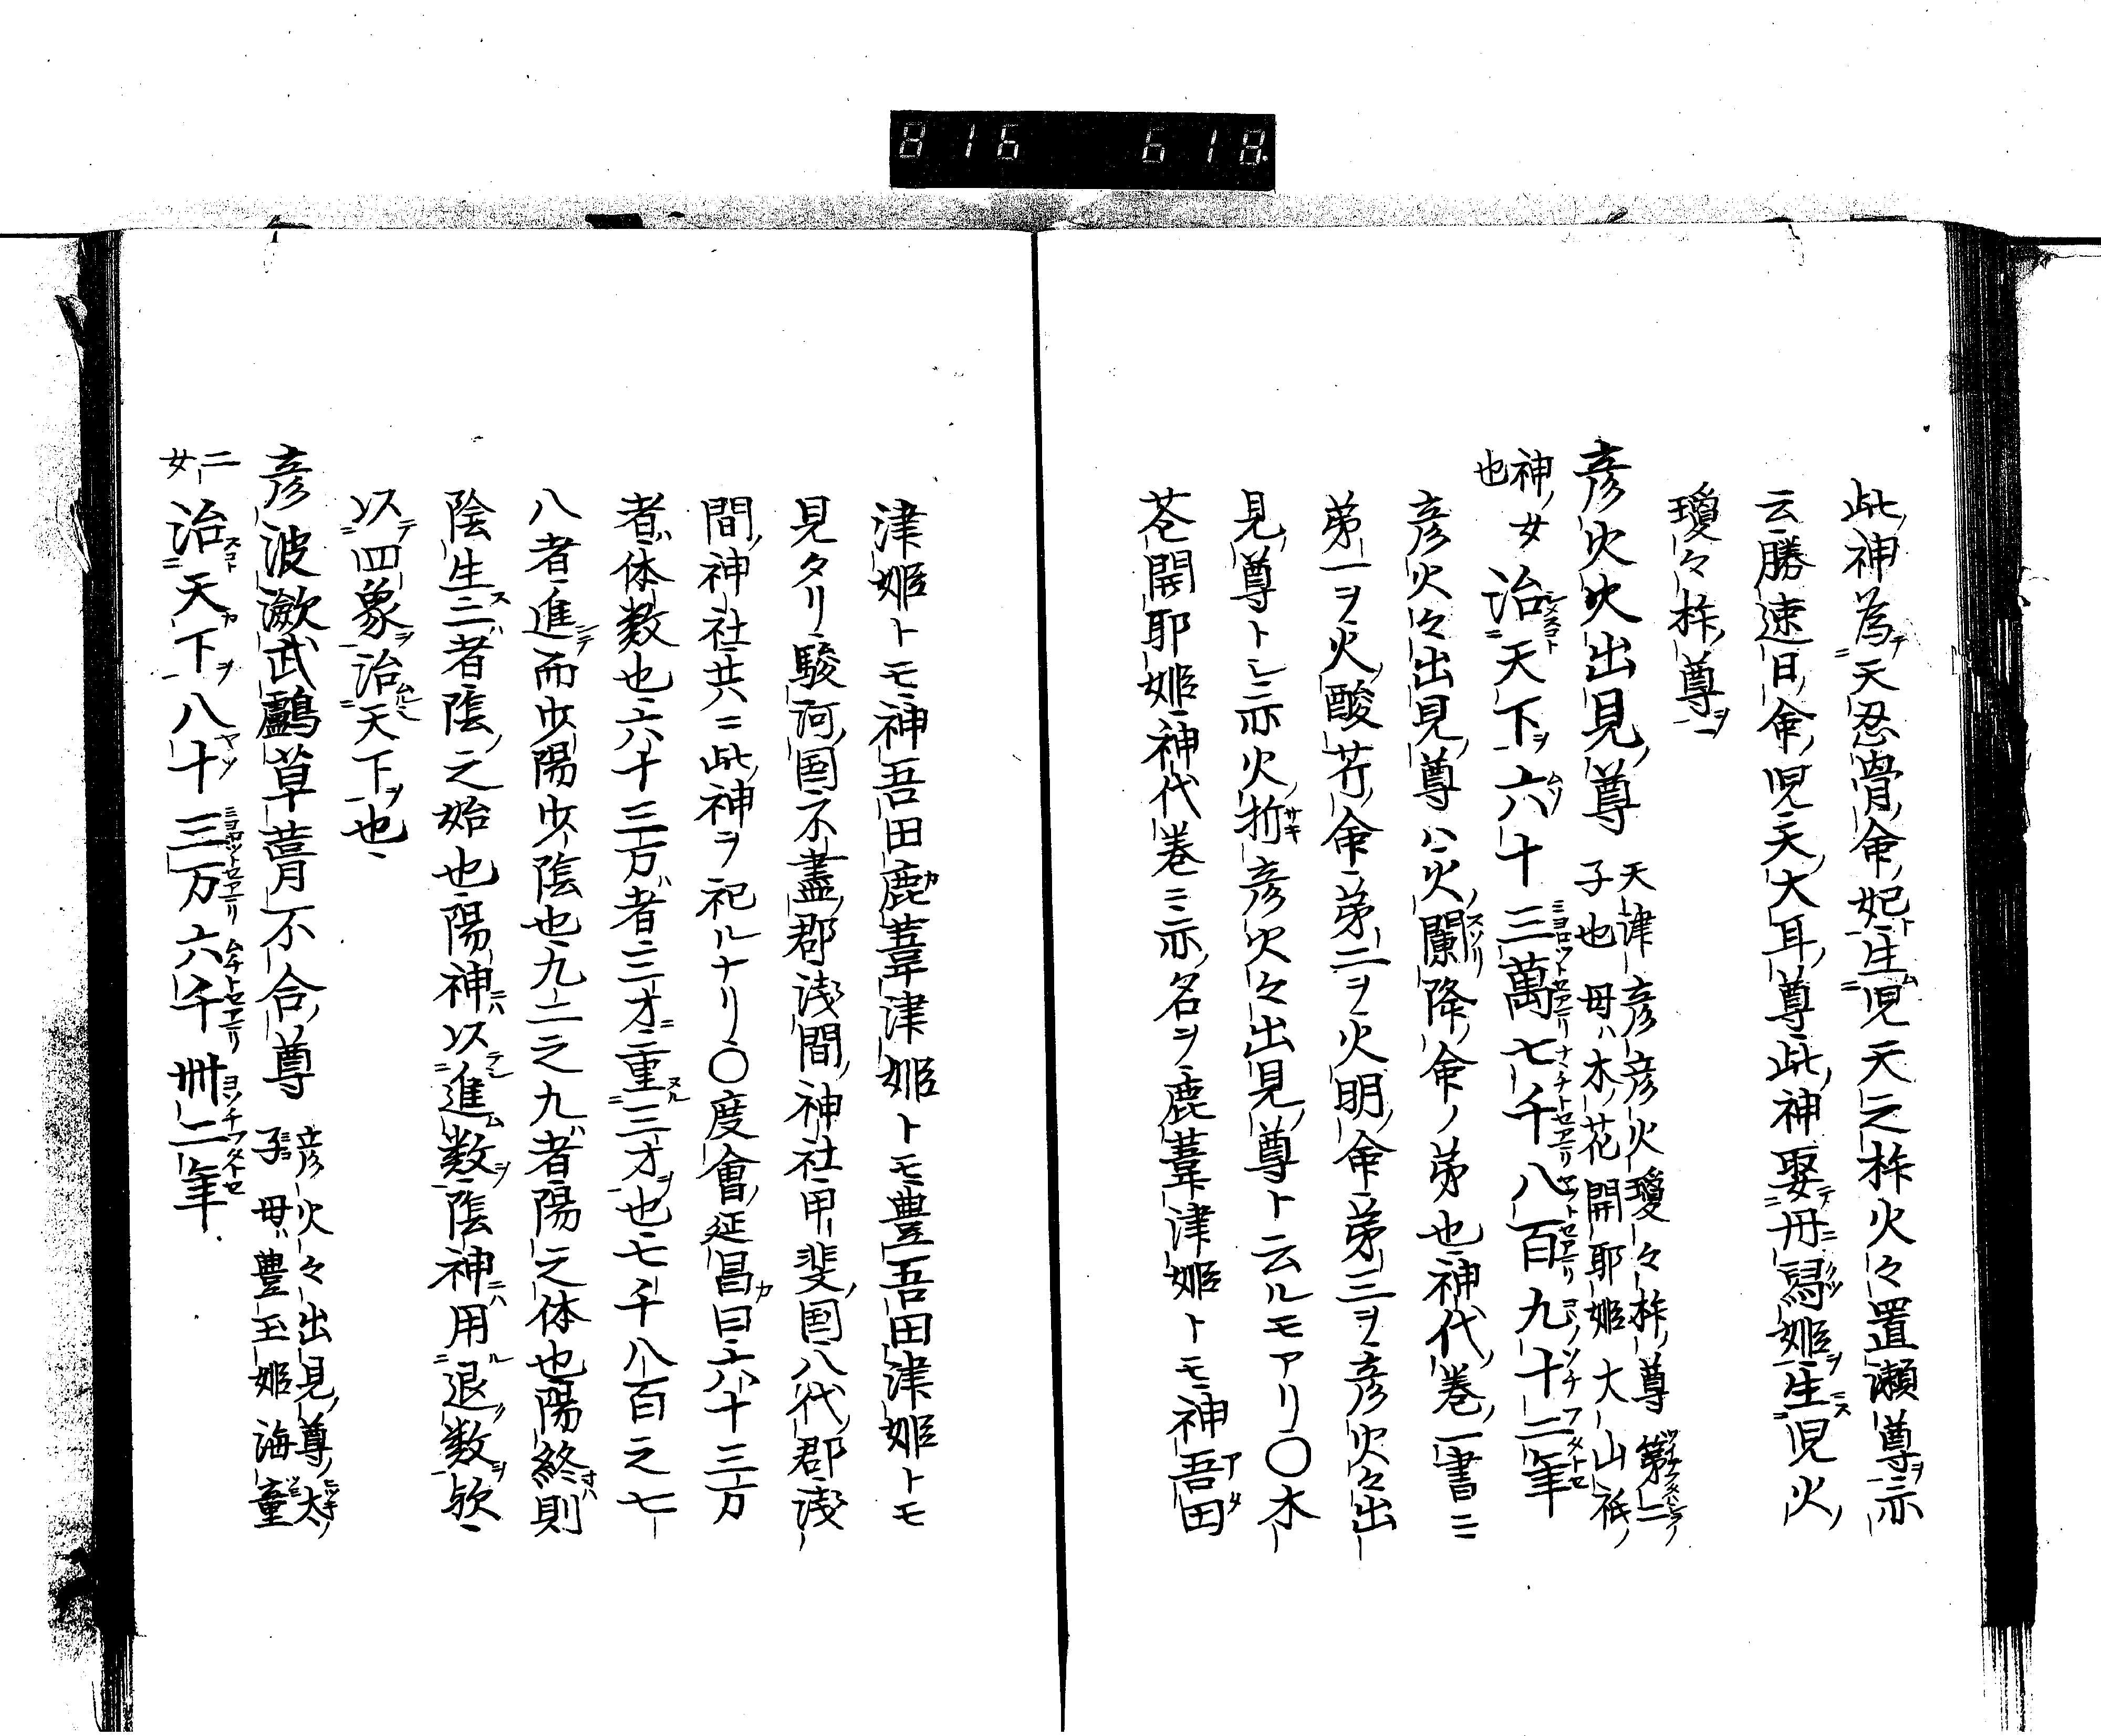 816 618.
此神為天忍骨命妃生児天之杵火々置瀬尊亦
云勝速日命児天大耳尊此神娶丹舄姫生児火
瓊々杵尊
彦火火出見尊 天津彦彦火瓊々杵尊第二ノ
子也母ハ木花開耶姫大山祇ノ
神ノ女
也 治天下六十三萬七千八百九十二年
彦火々出見尊ハ火闌降命ノ弟也神代巻一書ニ
第一ヲ火酸芹命第二ヲ火明命第三ヲ彦火々出
見尊トシ亦火折彦火々出見尊ト云ルモアリ〇木
花開耶姫神代巻ニ亦名ヲ鹿葦津姫トモ神吾田
津姫トモ神吾田鹿葦津姫トモ豊吾田津姫トモ
見タリ駿河国不盡郡浅間神社甲斐国八代郡浅
間神社共ニ此神ヲ祀ルナリ〇度會延昌曰六十三万
者体数也六十三万者三才ニ重三才也七千八百之七
八者進而少陽少陰也九二之九者陽之体也陽終則
陰生二者陰之始也陽神以進数陰神用退数欤
以四象治天下也
彦波瀲武鸕草葺不合尊 彦火々出見尊ノ太
子母ハ豊玉姫海童
二
女 治天下八十三万六千卌二年